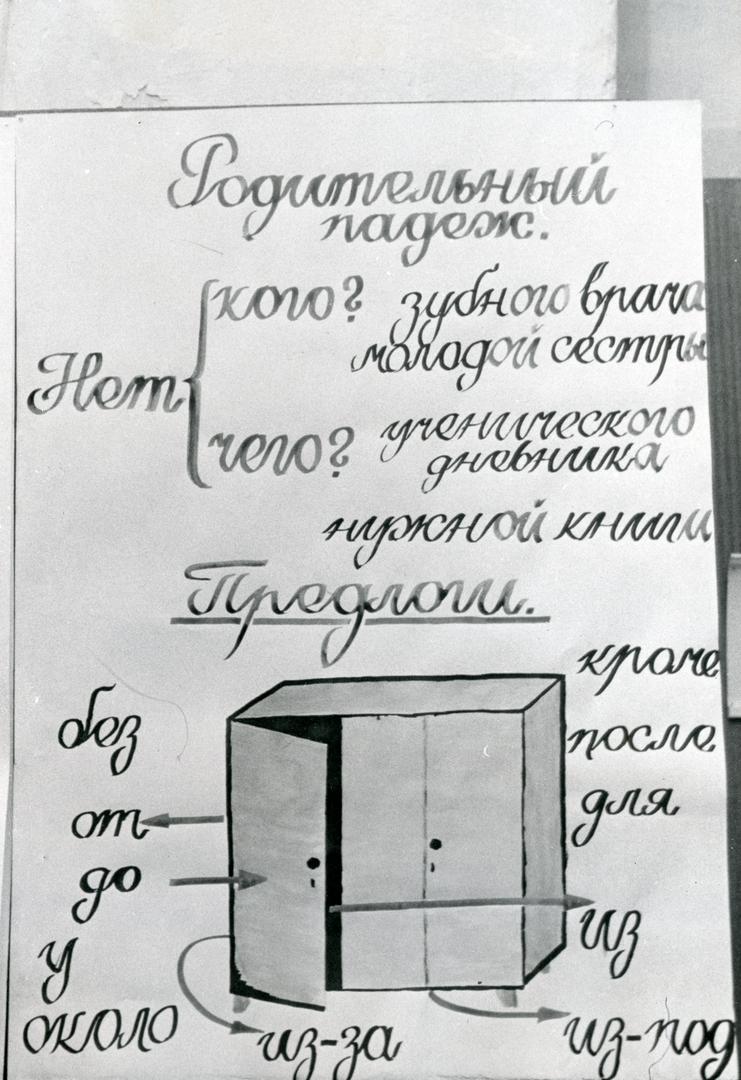 Родительный
падеж.
Нет
кого? зубного врача
молодой сестры
чего? ученического
дневника
нужной книги
Предлоги.
кроме
без
после
для
от
до
из
у
около
из-за
из-под